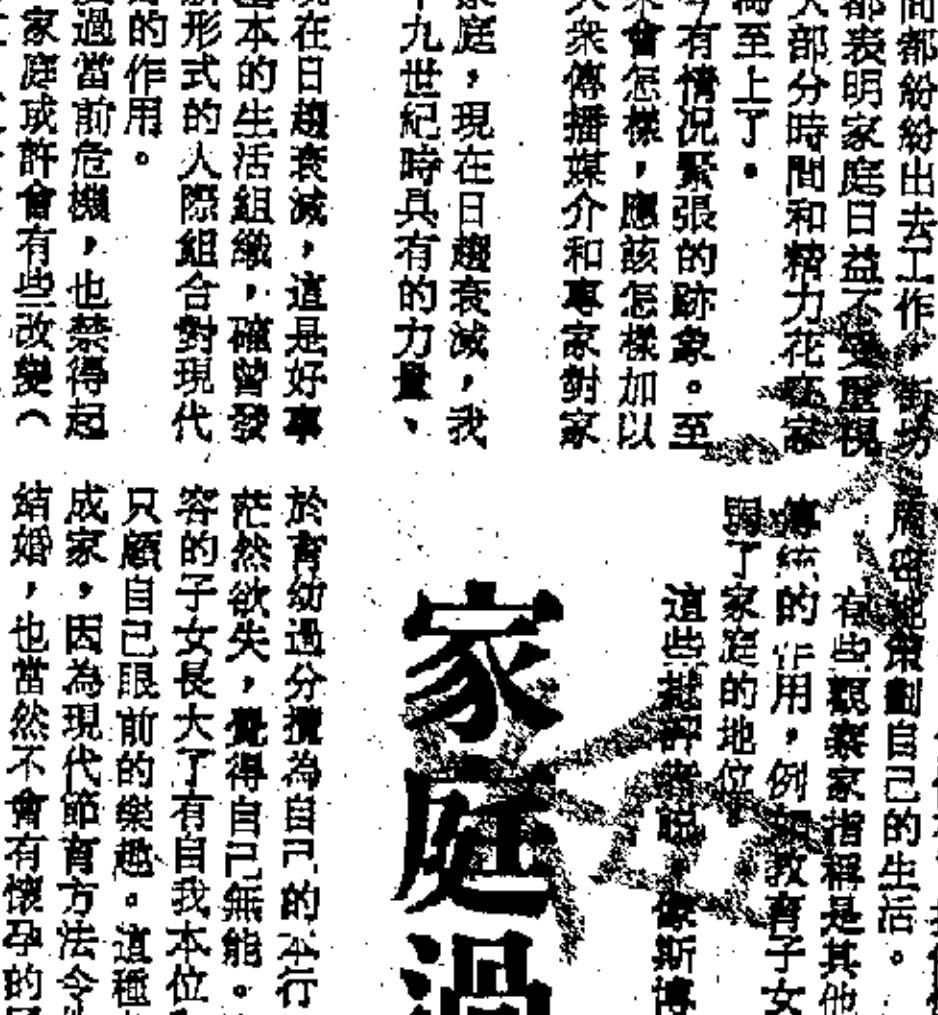 間都紛紛出去工作，
都表明家庭日益不受重視
大部分時間和精力花在家
為至上了。
今有情況緊張的跡象。至
來會怎樣，應該怎樣加以
大衆傳播媒介和專家對家
家庭，現在日趨衰減，我
十九世紀時具有的力量、
現在日趨衰減，這是好事
基本的生活組織，確曾發
新形式的人際組合對現代
的作用。
過當前危機，也禁得起
家庭或許會有些改變（
策劃自己的生活。
有些觀察家指稱是其他
傳統的作用，例如教育子女
弱了家庭的地位。
這些批評者說，像斯博
家庭過
於育幼過分攬為自己的本行
茫然欲失，覺得自己無能。
容的子女長大了有自我本位
只顧自己眼前的樂趣。這種
成家，因為現代節育方法令
結婚，也當然不會有懷孕的